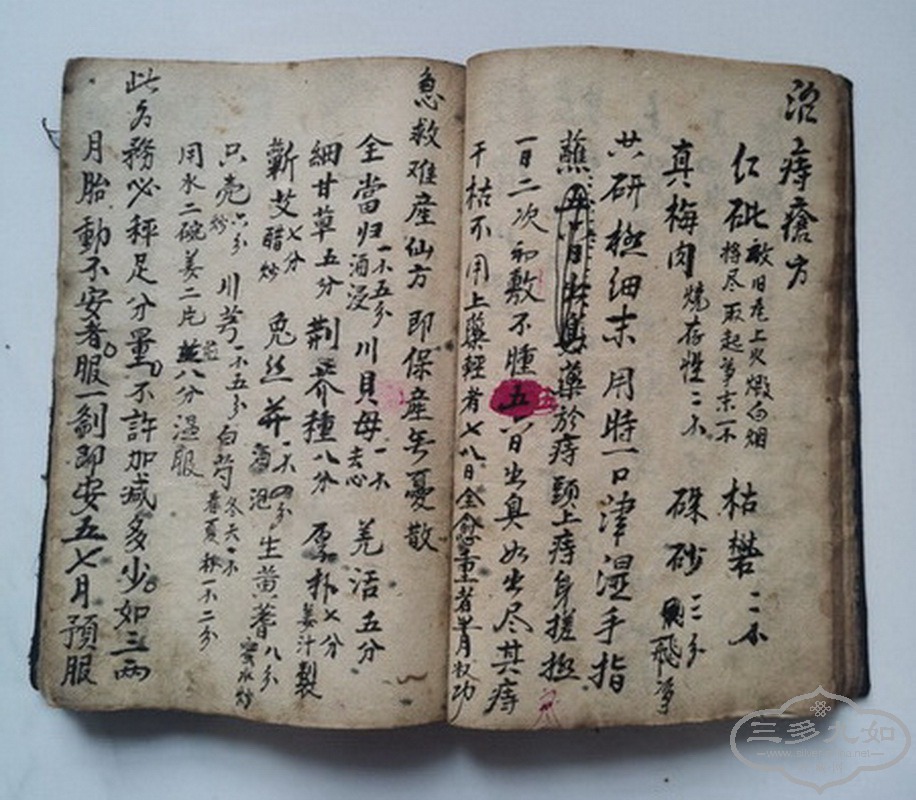 治痔瘡方
仁砒 敲 旧 上火煅白烟将尽取起 末一不 枯礬 二不
真梅肉 燒存性二不 硃砂 三分 飛 
共研極細末用時一口津湿手指
蘸 藥於痔頭上痔身搓擦
一日二次初敷不腫五 日出臭水出尽其痔
干枯不用上藥輕者七八日全愈重者半月收功
急救难産仙方 即保産無憂散
全當归 一不五分酒浸 川貝母 一不去心 羌活五分
細甘草五分 荆芥種八分 厚朴 七分姜汁製
蘄艾 七分醋炒 兔丝 一不四分酒泡 生黄蓍 八分蜜水炒
只壳 六分炒 川芎 一不五分 白芍 冬天一不春夏秋一不二分
用水二碗姜二片 八分温服
此方務必秤足分量不許加减多少如三两
月胎動不安者服一劑即安五七月預服
三多九如